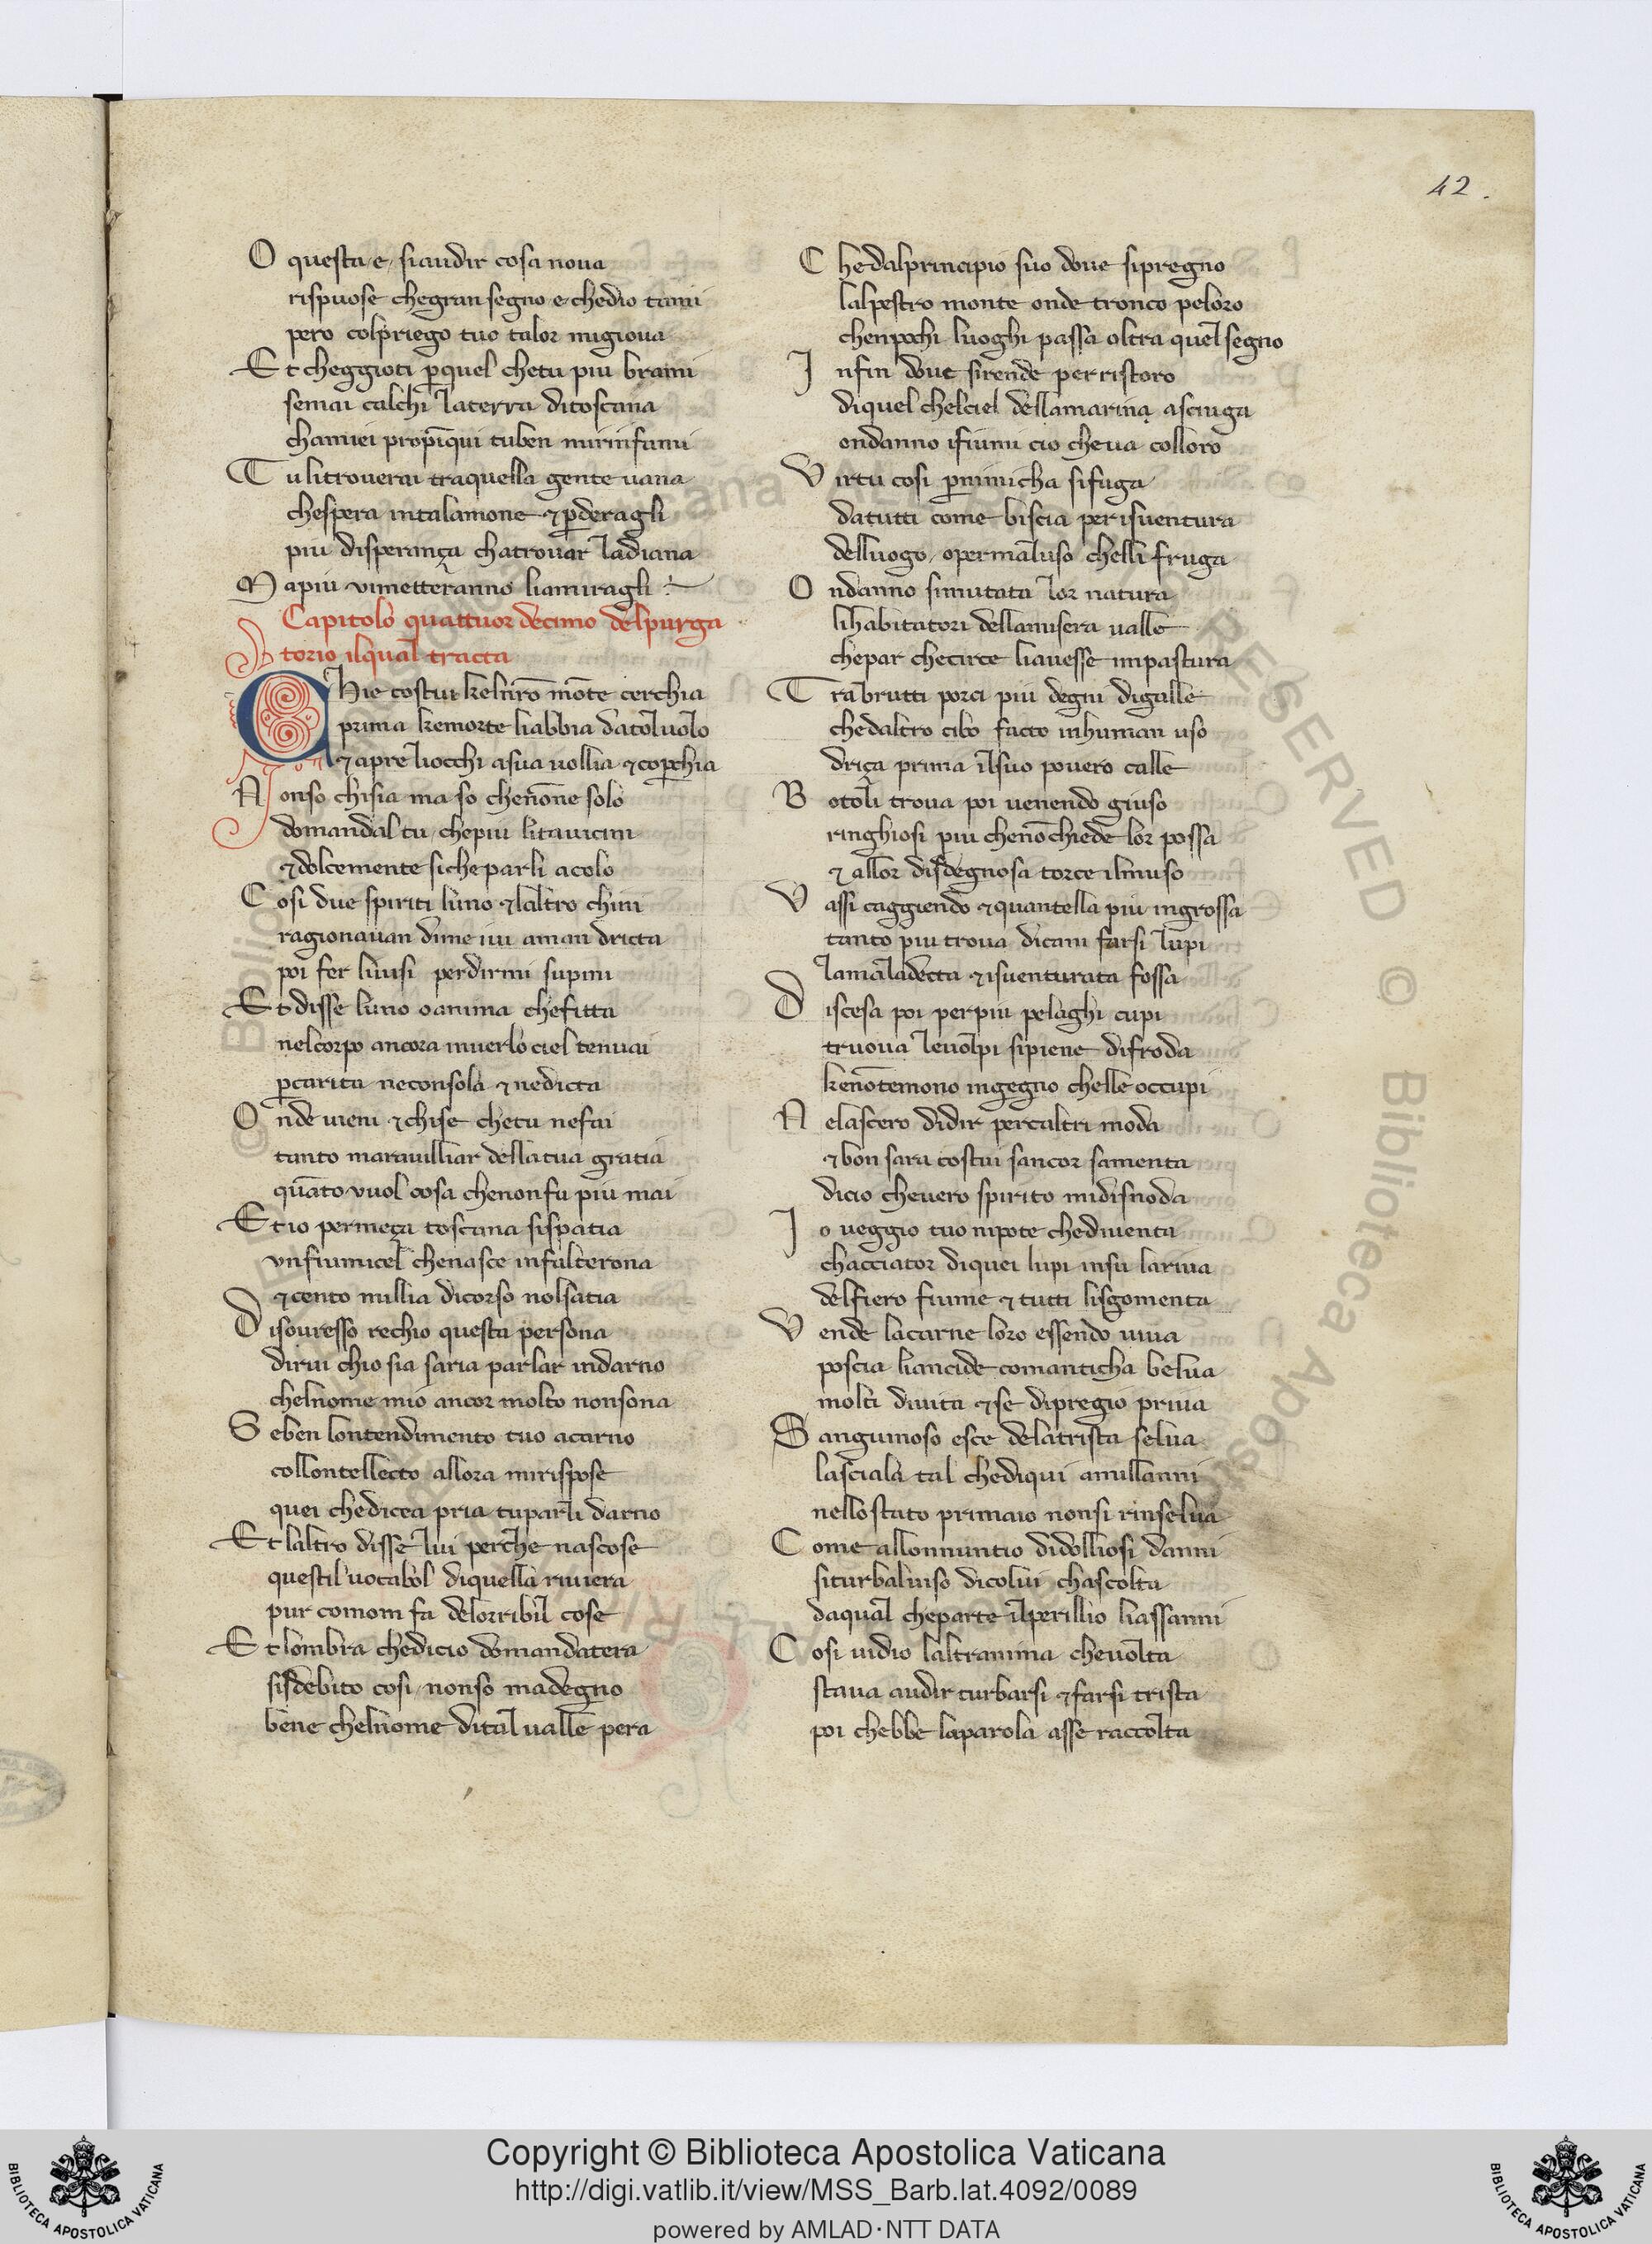 42.
O questa e siaudir cosa noua
rispuose chegran segno e chedio tami
pero colpriego tuo talor migioua
Et cheggioti p̱quel chetu piu brami
semai calchi laterra ditoscana
chamiei propīqui tuben mirinfami
Tu litrouerai traquella gente uana
chespera intalamone ⁊ p̱deragli
piu disperança chatrouar ladiana
Ma piu uimetteranno liamiragli
Capitolo quattuor decimo delpurga
torio ilqual tracta
Chie costui kelnrō mōte cerchia
prima kemorte liabbia datoluolo
⁊ apre liocchi asua uollia ⁊ cop̱chia
Non so chisia ma so chenōne solo
domandal tu chepiu litauicini
⁊ dolcemente sicheparli acolo
Cosi due spiriti luno ⁊ laltro chini
ragionauan dime iui aman dricta
poi fer liuisi perdirmi supini
Et disse luno o anima chefitta
nelcorpo ancora inuerlo ciel tenuai
p̱carita neconsola ⁊ nedicta
Onde uieni ⁊ chise chetu nefai
tanto marauilliar dellatua gratia
quāto vuol cosa chenonfu piu mai
Et io permeça toscana sispatia
vnfiumicel chenasce infalterona
⁊ cento millia dicorso nolsatia
Disouresso rechio questa persona
dirui chio sia saria parlar indarno
chelnome mio ancor molto nonsona
Se ben lontendimento tuo acarno
collontellecto allora mirispose
quei chedicea pria tuparli darno
Et laltro disse lui perche nascose
questil uocabol diquella riuiera
pur comom fa delorribil cose
Et lombra chedicio domandatera
sisdebito cosi nonso madegno
bene chelnome dital ualle pera
Chedalprincipio suo doue sipregno
lalpestro monte onde tronco peloro
chenpochi luoghi passa oltra quel segno
Infin doue sirende per ristoro
diquel chelciel dellamarina asciuga
ondanno ifiumi cio cheua colloro
Virtu cosi p̱nimicha sifuga
datutti come biscia per isuentura
delluogo opermaluso chelli fruga
Ondanno simutata lor natura
lihabitatori dellamisera ualle
chepar checirce liauesse inpastura
Tra brutti porci piu degni digalle
chedaltro cibo facto inhuman uso
driça prima ilsuo pouero calle
Botoli troua poi uenendo giuso
ringhiosi piu chenōchiede lor possa
⁊ allor disdegnosa torce ilmuso
Vassi caggiendo ⁊ quantella piu ingrossa
tanto piu troua dicani farsi lupi
lamaladecta ⁊ isuenturata fossa
Discesa poi perpiu pelaghi cupi
truoua leuolpi sipiene difroda
kenōtemono ingegno chelle occupi
Ne lascero didir percaltri moda
⁊ bon sara costui sancor samenta
dicio cheuero spirito midisnoda
Io ueggio tuo nipote chediuenta
chacciator diquei lupi insu lariua
delfiero fiume ⁊ tutti lisgomenta
Vende lacarne loro essendo uiua
poscia liancide comanticha belua
molti diuita ⁊ se dipregio priua
Sanguinoso esce delatrista selua
lasciala tal chediqui amillanni
nello stato primaio nonsi rinselua
Come allonnuntio didolliosi danni
siturbaluiso dicolui chascolta
daqual cheparte ilperillio liassanni
Cosi uidio laltranima cheuolta
staua audir turbarsi ⁊ farsi trista
poi chebbe laparola asse raccolta
Copyright © Biblioteca Apostolica Vaticana
http://digi.vatlib.it/view/MSS_Barb.lat.4092/0089
powered by AMLAD·NTT DATA
BIBLIOTECA APOSTOLICA VATICANA
BIBLIOTECA APOSTOLICA VATICANA